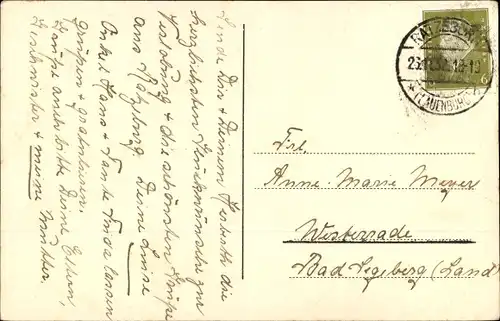 Sende Dir & Deinem Herbert die
herzlichsten Glückwünsche zur
Verlobung & die schönsten Grüße
aus Ratzeburg Deine Luise
Onkel Hans & Tante Frida lassen
grüßen & gratulieren.
Grüße auch bitte Deine Eltern,
Geschwister & meine Mutter.
RATZEBURG
* (LAUENBURG)
6
Frl.
Anne-Marie Meyer
Westerrade
Bad Segeberg (Land)